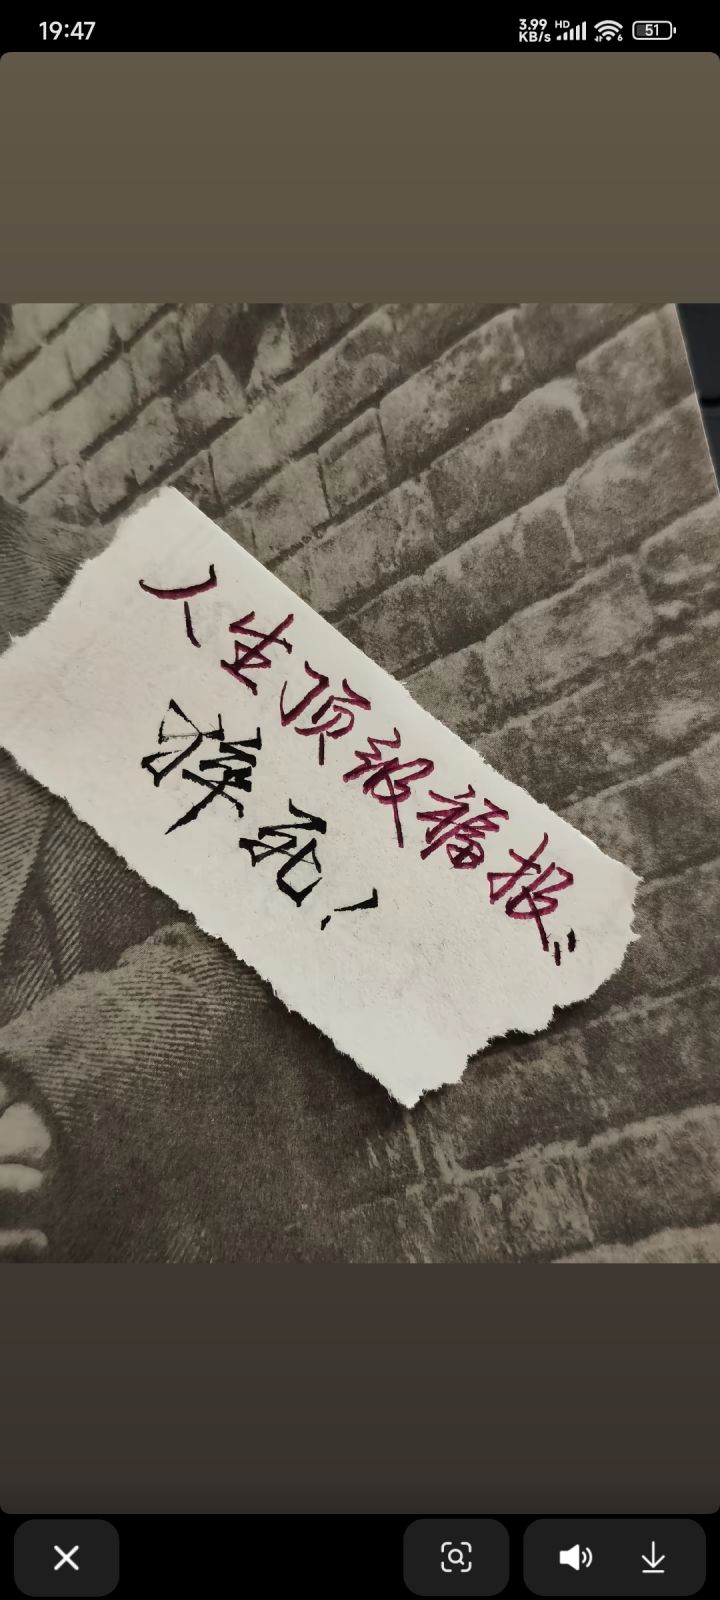 19:47
3.99 KB/s HD 6 51
人生顶级福报:
猝死!